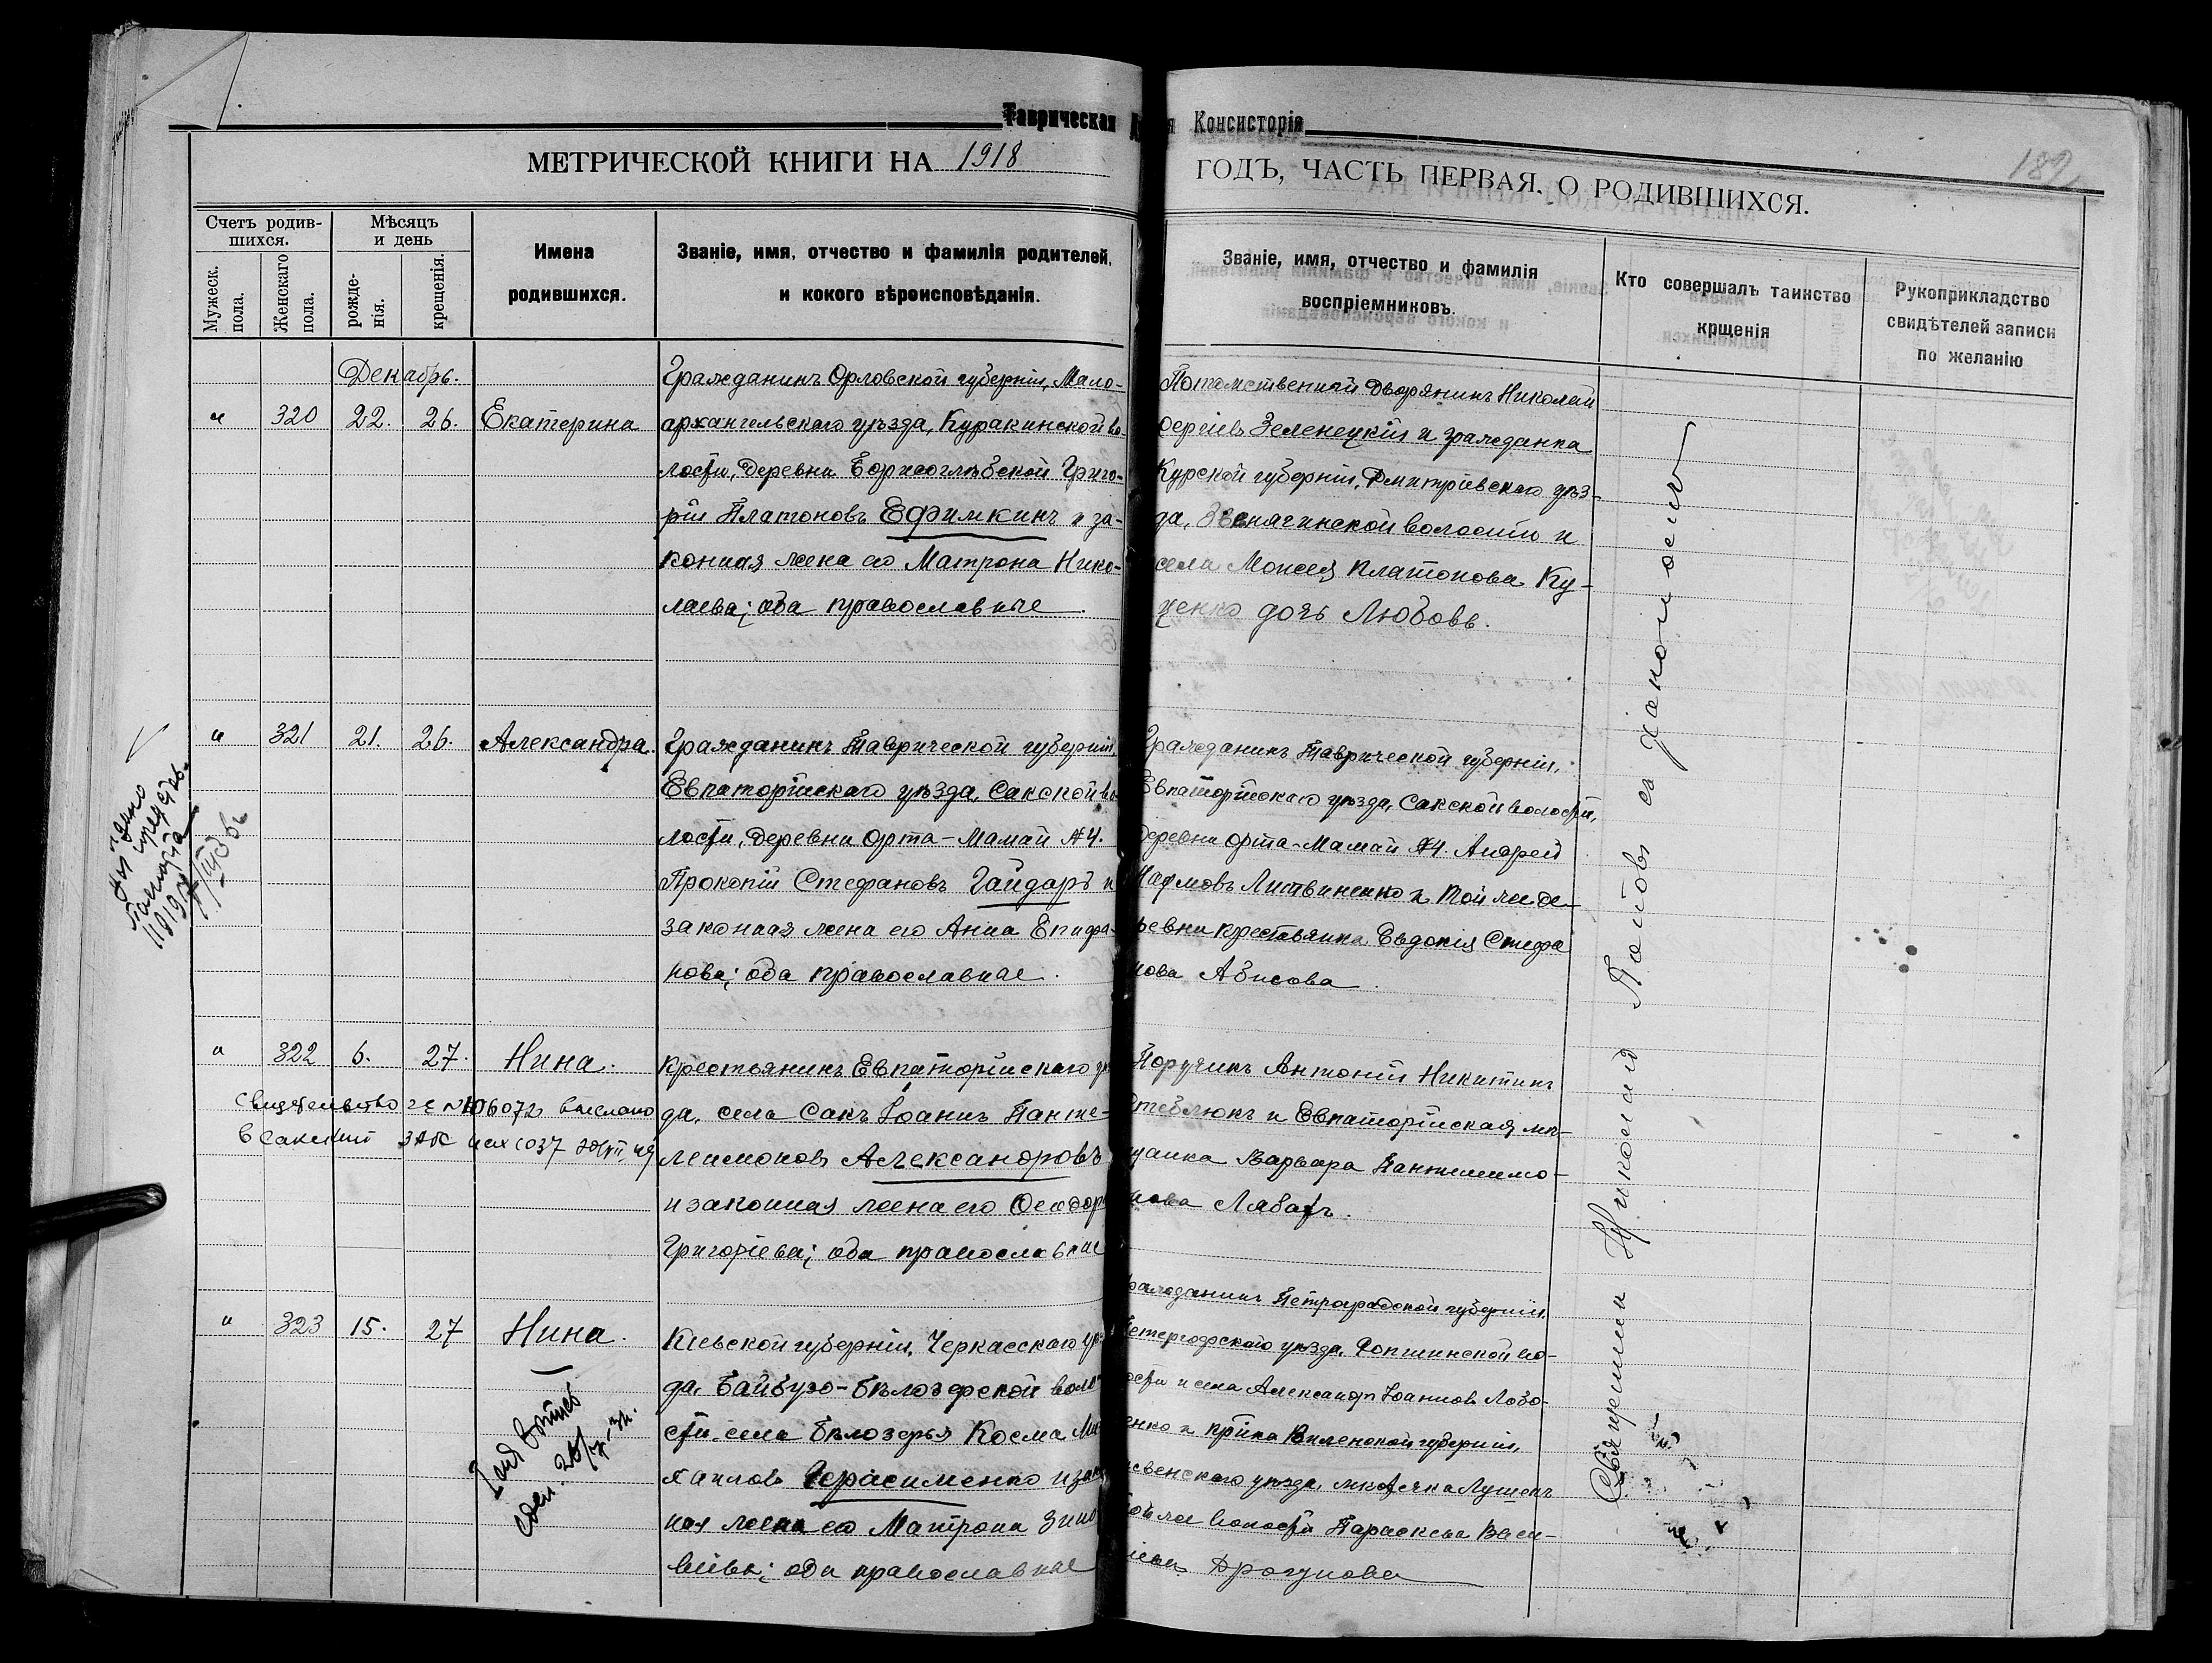 Таврическая
я Консисторія
МЕТРИЧЕСКОЙ КНИГИ НА 1918
ГОДЪ, ЧАСТЬ ПЕРВАЯ. О РОДИВШИХСЯ.
182
Счетъ родив-
шихся.
Мужеск. пола.
Женскаго пола.
Мѣсяцъ
и день
рожде-
нія.
крещенія.
Имена
родившихся.
Званіе, имя, отчество и фамилія родителей,
и кокого вѣроисповѣданія.
Званіе, имя, отчество и фамилія
воспріемниковъ.
Кто совершалъ таинство
крщенія
Рукоприкладство
свидѣтелей записи
по желанію
Декабрь.
" 320 22. 26. Екатерина
Гражданинъ Орловской губерніи, Мало-
архангельскаго уѣзда, Куракинской во-
лости, деревни Борисоглѣбской Григо-
рій Платоновъ Ефимкинъ и за-
конная жена его Матрона Нико-
лаева; оба православные.
Потомственный Дворянинъ Николай
Сергіевъ Зеленецкій и гражданка
Курской губерніи, Дмитріевскаго уѣз-
да, волости и
села Моисея Платонова Ку-
ценко дочь Любовь.
" 321 21. 26. Александра.
Гражданинъ Таврической губерніи
Евпаторійскаго уѣзда, Сакской во-
лости, деревни Орта-Мамай №4.
Прокопій Стефановъ Гайдаръ и
законная жена его Анна Епифа-
нова; оба православные.
Гражданинъ Таврической губерніи,
Евпаторійскаго уѣзда, Сакской волости,
деревни Орта-Мамай №4. Андрей
Литвиненко и той же де-
ревни крестьянка Евдокія Стефа
нова Абисова.
" 322 6. 27. Нина.
Свидетельство выслано
в Сакский ЗАГС исх 1037
Крестьянинъ Евпаторійскаго уѣ
да, села Сакъ Іоаннъ Панте-
леимоновъ Александровъ
и законная жена его Ѳеодора
Григоріева; оба православные
Поручикъ Антоній Никитинъ
Стеблюкъ и Евпаторійская мѣ-
щанка Варвара Пантелеимо-
нова Лябахъ.
" 323 15. 27 Нина.
Кіевской губерніи, Черкасскаго уѣз
да, Байбузо-Бѣлозерской воло
сти, села Бѣлозерья Косма Ми
хаиловъ Герасименко и закон
ная жена его Матрона Зино
віева; оба православные
Гражданинъ Петроградской губерніи,
Петергофскаго уѣзда, Ропшинской во-
лости и села Александръ Іоанновъ Лозо-
енко и Виленской губерніи,
уѣзда,
той же волости Параскева Васи-
ліева Драгунова
Священникъ Николай Поповъ съ діакономъ